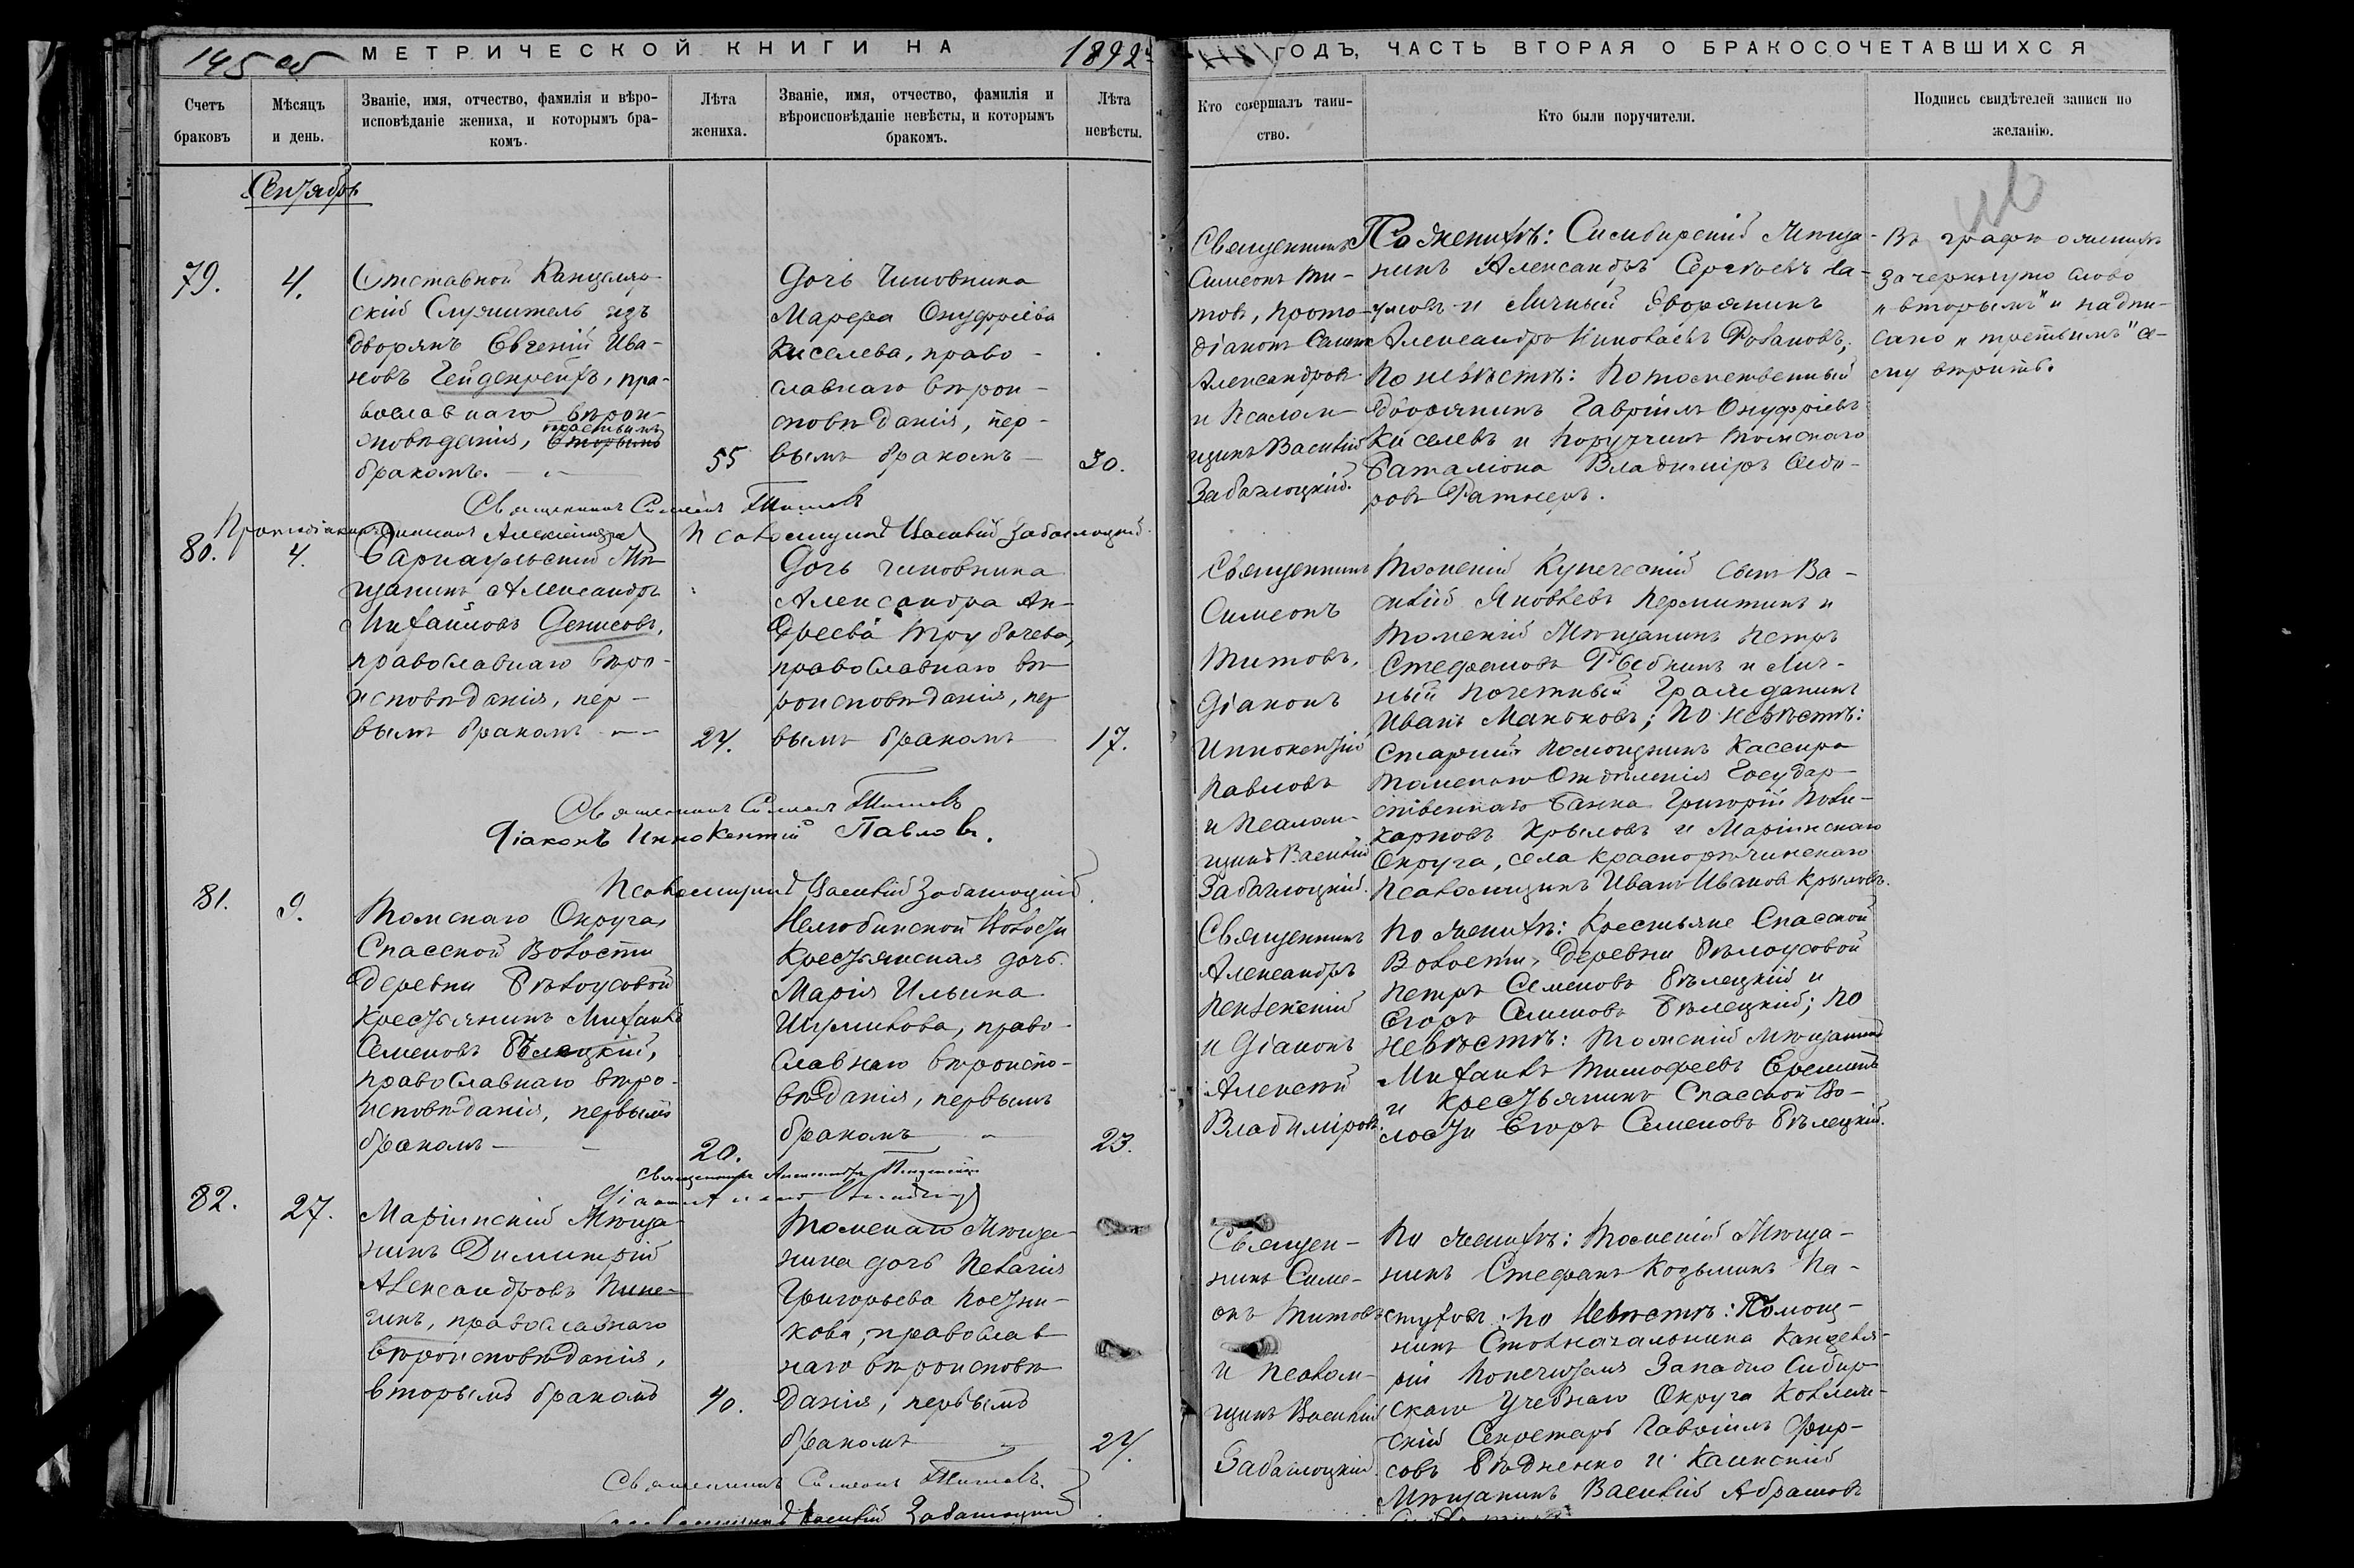 145 об МЕТРИЧЕСКОЙ КНИГИ НА 1892
ГОДЪ, ЧАСТЬ ВТОРАЯ О БРАКОСОЧЕТАВШИХСЯ
Счетъ
браковъ
Мѣсяцъ
и день.
Званіе, имя, отчество, фамилія и вѣро-
исповѣданіе жениха, и которымъ бра-
комъ.
Лѣта
жениха.
Званіе, имя, отчество, фамилія и
вѣроисповѣданіе невѣсты, и которымъ
бракомъ.
Лѣта
невѣсты.
Кто совершалъ таин-
ство.
Кто были поручители.
Подпись свидѣтелей записи по
желанію.
Сентябрь
79.
4.
Отставной Канцеляр-
скій Служитель изъ
дворянъ Евгеній Ива-
новъ Гейденрейхъ, пра-
вославнаго вѣрои-
третьимъ
сповѣданія, вторымъ
бракомъ.
55
Дочь Чиновника
Марфа Онуфріева
Киселева, право-
славнаго вѣрои-
сповѣданія, пер-
вымъ бракомъ
30.
Священникъ
Симеонъ Ти-
товъ, прото-
діаконъ
Александровъ
и Псалом-
щикъ Василій
Забаглоцкій.
По женихѣ: Симбирскій Мѣща-
нинъ Александръ Сергѣевъ На-
умовъ и Личный дворянинъ
Александръ Николаевъ Розановъ;
По невѣстѣ: Потомственный
дворянинъ Гавріилъ Онуфріевъ
Киселевъ и Поручикъ Томскаго
баталіона Владиміръ Ѳедо-
ровъ Ратнеръ.
Въ графѣ о женихѣ
зачеркнуто слово
„вторымъ" и надпи-
сано „третьимъ" се-
му вѣрить.
Священникъ Симеонъ Титовъ
Протодіаконъ
Псаломщикъ Василій Забаглоцкій
80.
4.
Барнаульскій Мѣ-
щанинъ Александръ
Михайловъ Денисовъ,
православнаго вѣро-
исповѣданія, пер-
вымъ бракомъ
24.
Дочь чиновника
Александра Ан-
дреева Трубачева,
православнаго вѣ-
роисповѣданія, пер
вымъ бракомъ
17.
Священникъ
Симеонъ
Титовъ,
Діаконъ
Иннокентій
Павловъ
и Псалом-
щикъ Василій
Забаглоцкій.
Томскій Купеческій сынъ Ва-
силій Яковлевъ Пермитинъ и
Томскій Мѣщанинъ Петръ
Стефановъ Рыбкинъ и Лич-
ный почетный Гражданинъ
Иванъ Маноковъ; По невѣстѣ:
Старшій Помощникъ Кассира
Томскаго Отдѣленія Государ-
ственнаго банка Григорій Поли-
карповъ Крыловъ и Маріинскаго
Округа, села Краснорѣчинскаго
Псаломщикъ Иванъ Ивановъ Крыловъ.
Священникъ Симеонъ Титовъ
Діаконъ Иннокентій Павловъ.
Псаломщикъ Василій Забаглоцкій
81.
9.
Томскаго Округа,
Спасской Волости
деревни Бѣлоусовой
крестьянинъ Михаилъ
Семеновъ Бѣлецкій,
православнаго вѣро-
исповѣданія, первымъ
бракомъ
20.
Нелюбинской Волости
Крестьянская дочь
Марія Ильина
Шумилова, право-
славнаго вѣроиспо-
вѣданія, первымъ
бракомъ
23.
Священникъ
Александръ
Пензенскій
и Діаконъ
Алексѣй
Владиміровъ
По женихѣ: Крестьяне Спасской
Волости, деревни Бѣлоусовой
Петръ Семеновъ Бѣлецкій и
Егоръ Семеновъ Бѣлецкій; По
невѣстѣ: Томскій мѣщанинъ
Михаилъ Тимофеевъ Ереминъ
и крестьянинъ Спасской Во-
лости Егоръ Семеновъ Бѣлецкій.
Священникъ Александръ Пензенскій
82.
27.
Маріинскій Мѣща-
нинъ Димитрій
Александровъ Пине-
гинъ, православнаго
вѣроисповѣданія,
вторымъ бракомъ
40.
Томскаго Мѣща-
нина дочь Пелагія
Григорьева Постни-
кова, православ
наго вѣроисповѣ
данія, первымъ
бракомъ
24.
Священ-
никъ Симе-
онъ Титовъ
и Псалом-
щикъ Василій
Забаглоцкій.
По женихѣ: Томскій Мѣща-
нинъ Стефанъ Козьминъ Па-
стуховъ; По Невѣстѣ: Помощ-
никъ Столоначальника Канцеля-
ріи Попечителя Западно Сибир
скаго Учебнаго Округа Коллеж-
скій Секретарь Гавріилъ Фир-
совъ Бѣдненко и Каинскій
Мѣщанинъ Василій Абрамовъ
Священникъ Симеонъ Титовъ.
Псаломщикъ Василій Забаглоцкій